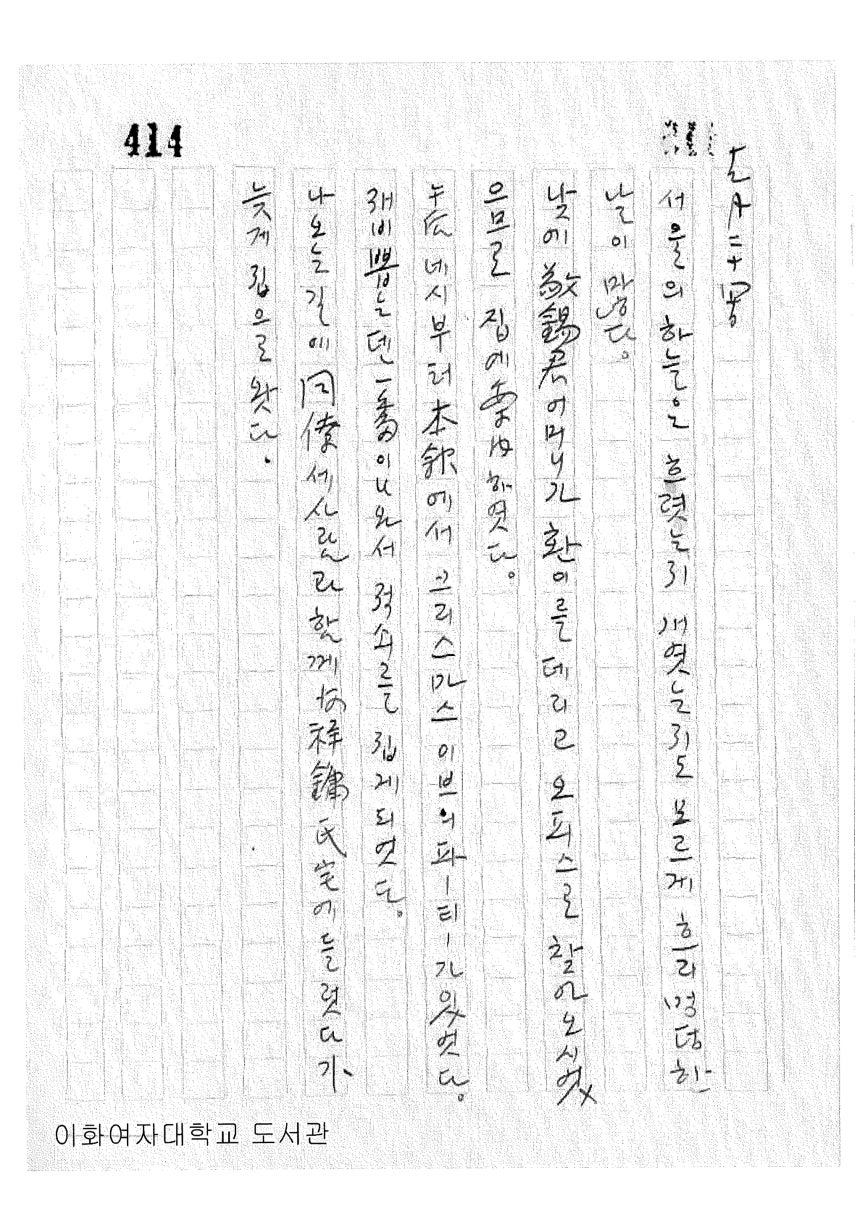 414
서울의 하늘은 흐렷는지 개엿는지도 모르게 흐리멍덩한
날이 많다.
낮에 敬錫君 어머니가 환이를 데리고 오피스로 찾아오시엇
으므로 집에 案內하엿다.
午后 네시부터 本欽에서 크리스마스 이브의 파ー티ー가 잇엇다.
재비뽑는덴 一番이 나와서 적쇠를 집게 되엿다.
나오는 길에 同僚 세사람과 함께 祥鏞氏宅에 들렷다가
늦게 집으로 왓다.
이화여자대학교 도서관